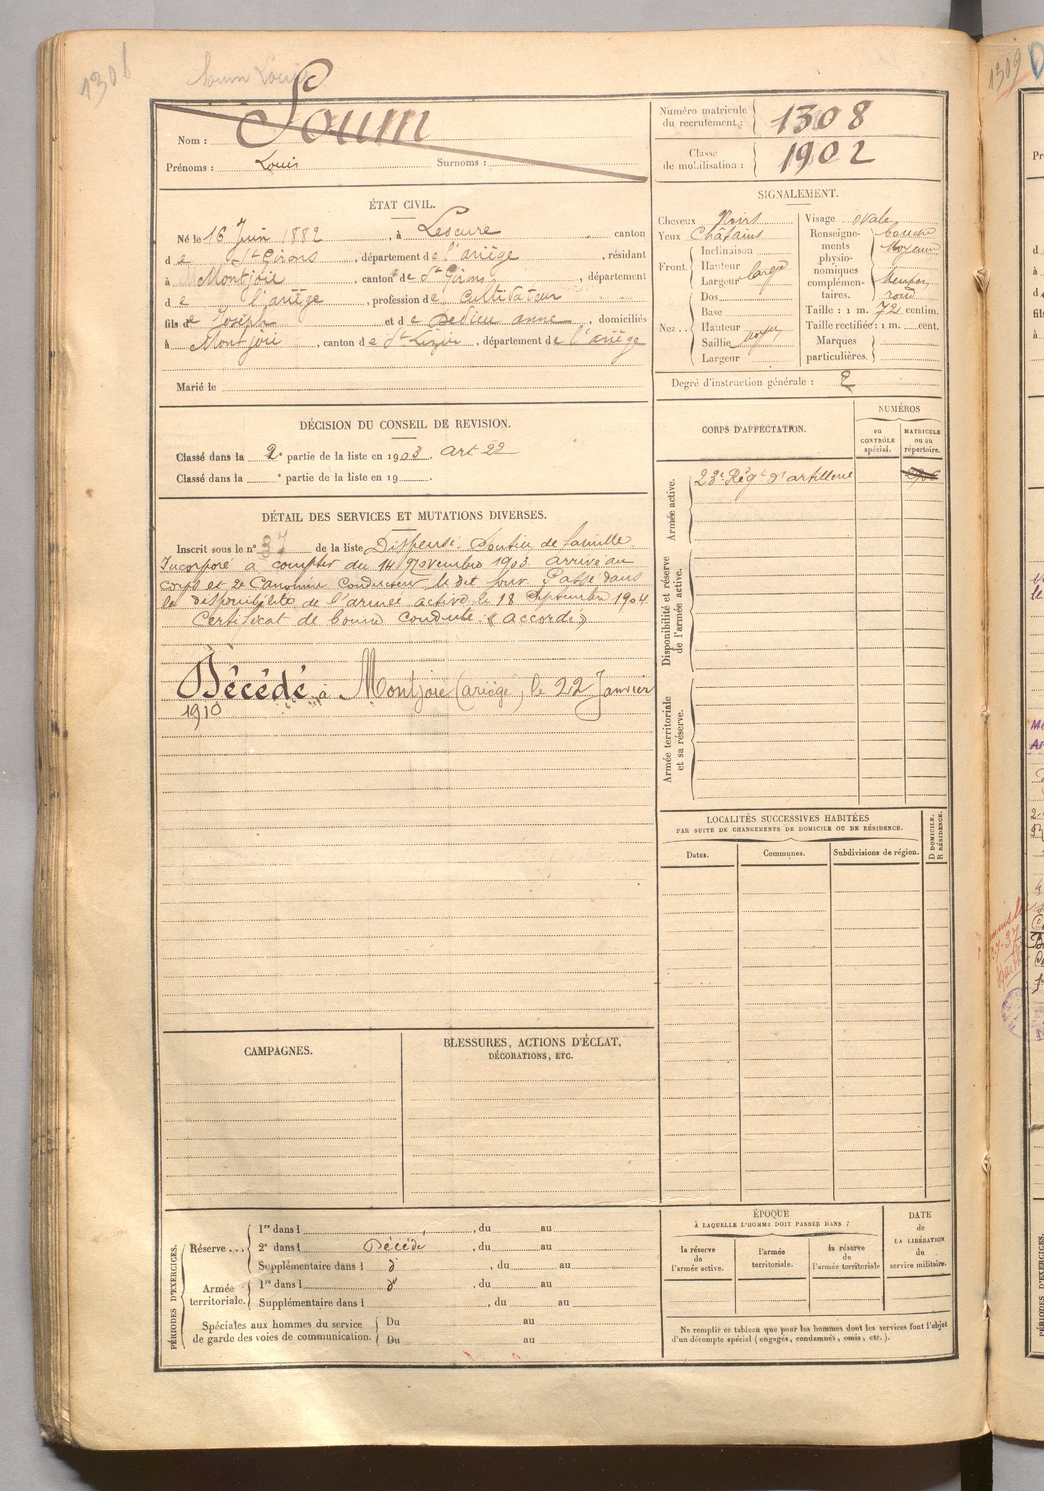 1308
Soum Louis
Nom : Soum
Prénoms : Louis Surnoms :
Numéro matricule du recrutement : 1308
Classe de mobilisation : 1902
ÉTAT CIVIL.
Né le 16 Juin 1882, à Lescure, canton
de St Girons, département de l'ariège, résidant
à Montjoie, canton de St Girons, département
de l'ariège, profession de cultivateur
fils de Joseph et de Dedieu anne, domiciliés
à Montjoie, canton de St Lizier, département de l'ariège
Marié le
SIGNALEMENT.
Cheveux Noirs
Yeux Châtains
Front. Inclinaison
Hauteur
Largeur large
Nez.. Dos
Base
Hauteur
Saillie moyen
Largeur
Visage ovale
Renseignements physionomiques complémentaires. bouche
moyenne
Menton
rond
Taille : 1 m. 72 centim.
Taille rectifiée : 1 m. cent.
Marques particulières.
Degré d'instruction générale : 2
DÉCISION DU CONSEIL DE REVISION.
Classé dans la 2e partie de la liste en 1903. art 22
Classé dans la e partie de la liste en 19
CORPS D'AFFECTATION.
NUMÉROS
au CONTRÔLE spécial.
MATRICULE ou au répertoire.
Armée active.
23e Régt d'artillerie
Disponibilité et réserve de l'armée active.
Armée territoriale et sa réserve.
DÉTAIL DES SERVICES ET MUTATIONS DIVERSES.
Inscrit sous le n° 37 de la liste Dispensé. Soutien de famille
Incorporé à compter du 14 Novembre 1903. arrivé au
corps et 2e Canonnier Conducteur le dit jour. Passé dans
la disponibilité de l'armée active le 18 Septembre 1904
Certificat de bonne conduite « accordé »
Décédé à Montjoie (ariège) le 22 Janvier
1910
LOCALITÉS SUCCESSIVES HABITÉES
PAR SUITE DE CHANGEMENTS DE DOMICILE OU DE RÉSIDENCE.
Dates. Communes. Subdivisions de région. D DOMICILE. R RÉSIDENCE.
CAMPAGNES.
BLESSURES, ACTIONS D'ÉCLAT,
DÉCORATIONS, ETC.
PÉRIODES D'EXERCICES.
Réserve... 1re dans l , du au
2e dans l Décédé , du au
Supplémentaire dans l d° , du au
Armée territoriale. 1re dans l d° , du au
Supplémentaire dans l , du au
Spéciales aux hommes du service Du au
de garde des voies de communication. Du au
ÉPOQUE
À LAQUELLE L'HOMME DOIT PASSER DANS :
la réserve de l'armée active.
l'armée territoriale.
la réserve de l'armée territoriale
DATE de LA LIBÉRATION du service militaire.
Ne remplir ce tableau que pour les hommes dont les services font l'objet
d'un décompte spécial (engagés, condamnés, omis, etc.).
1309